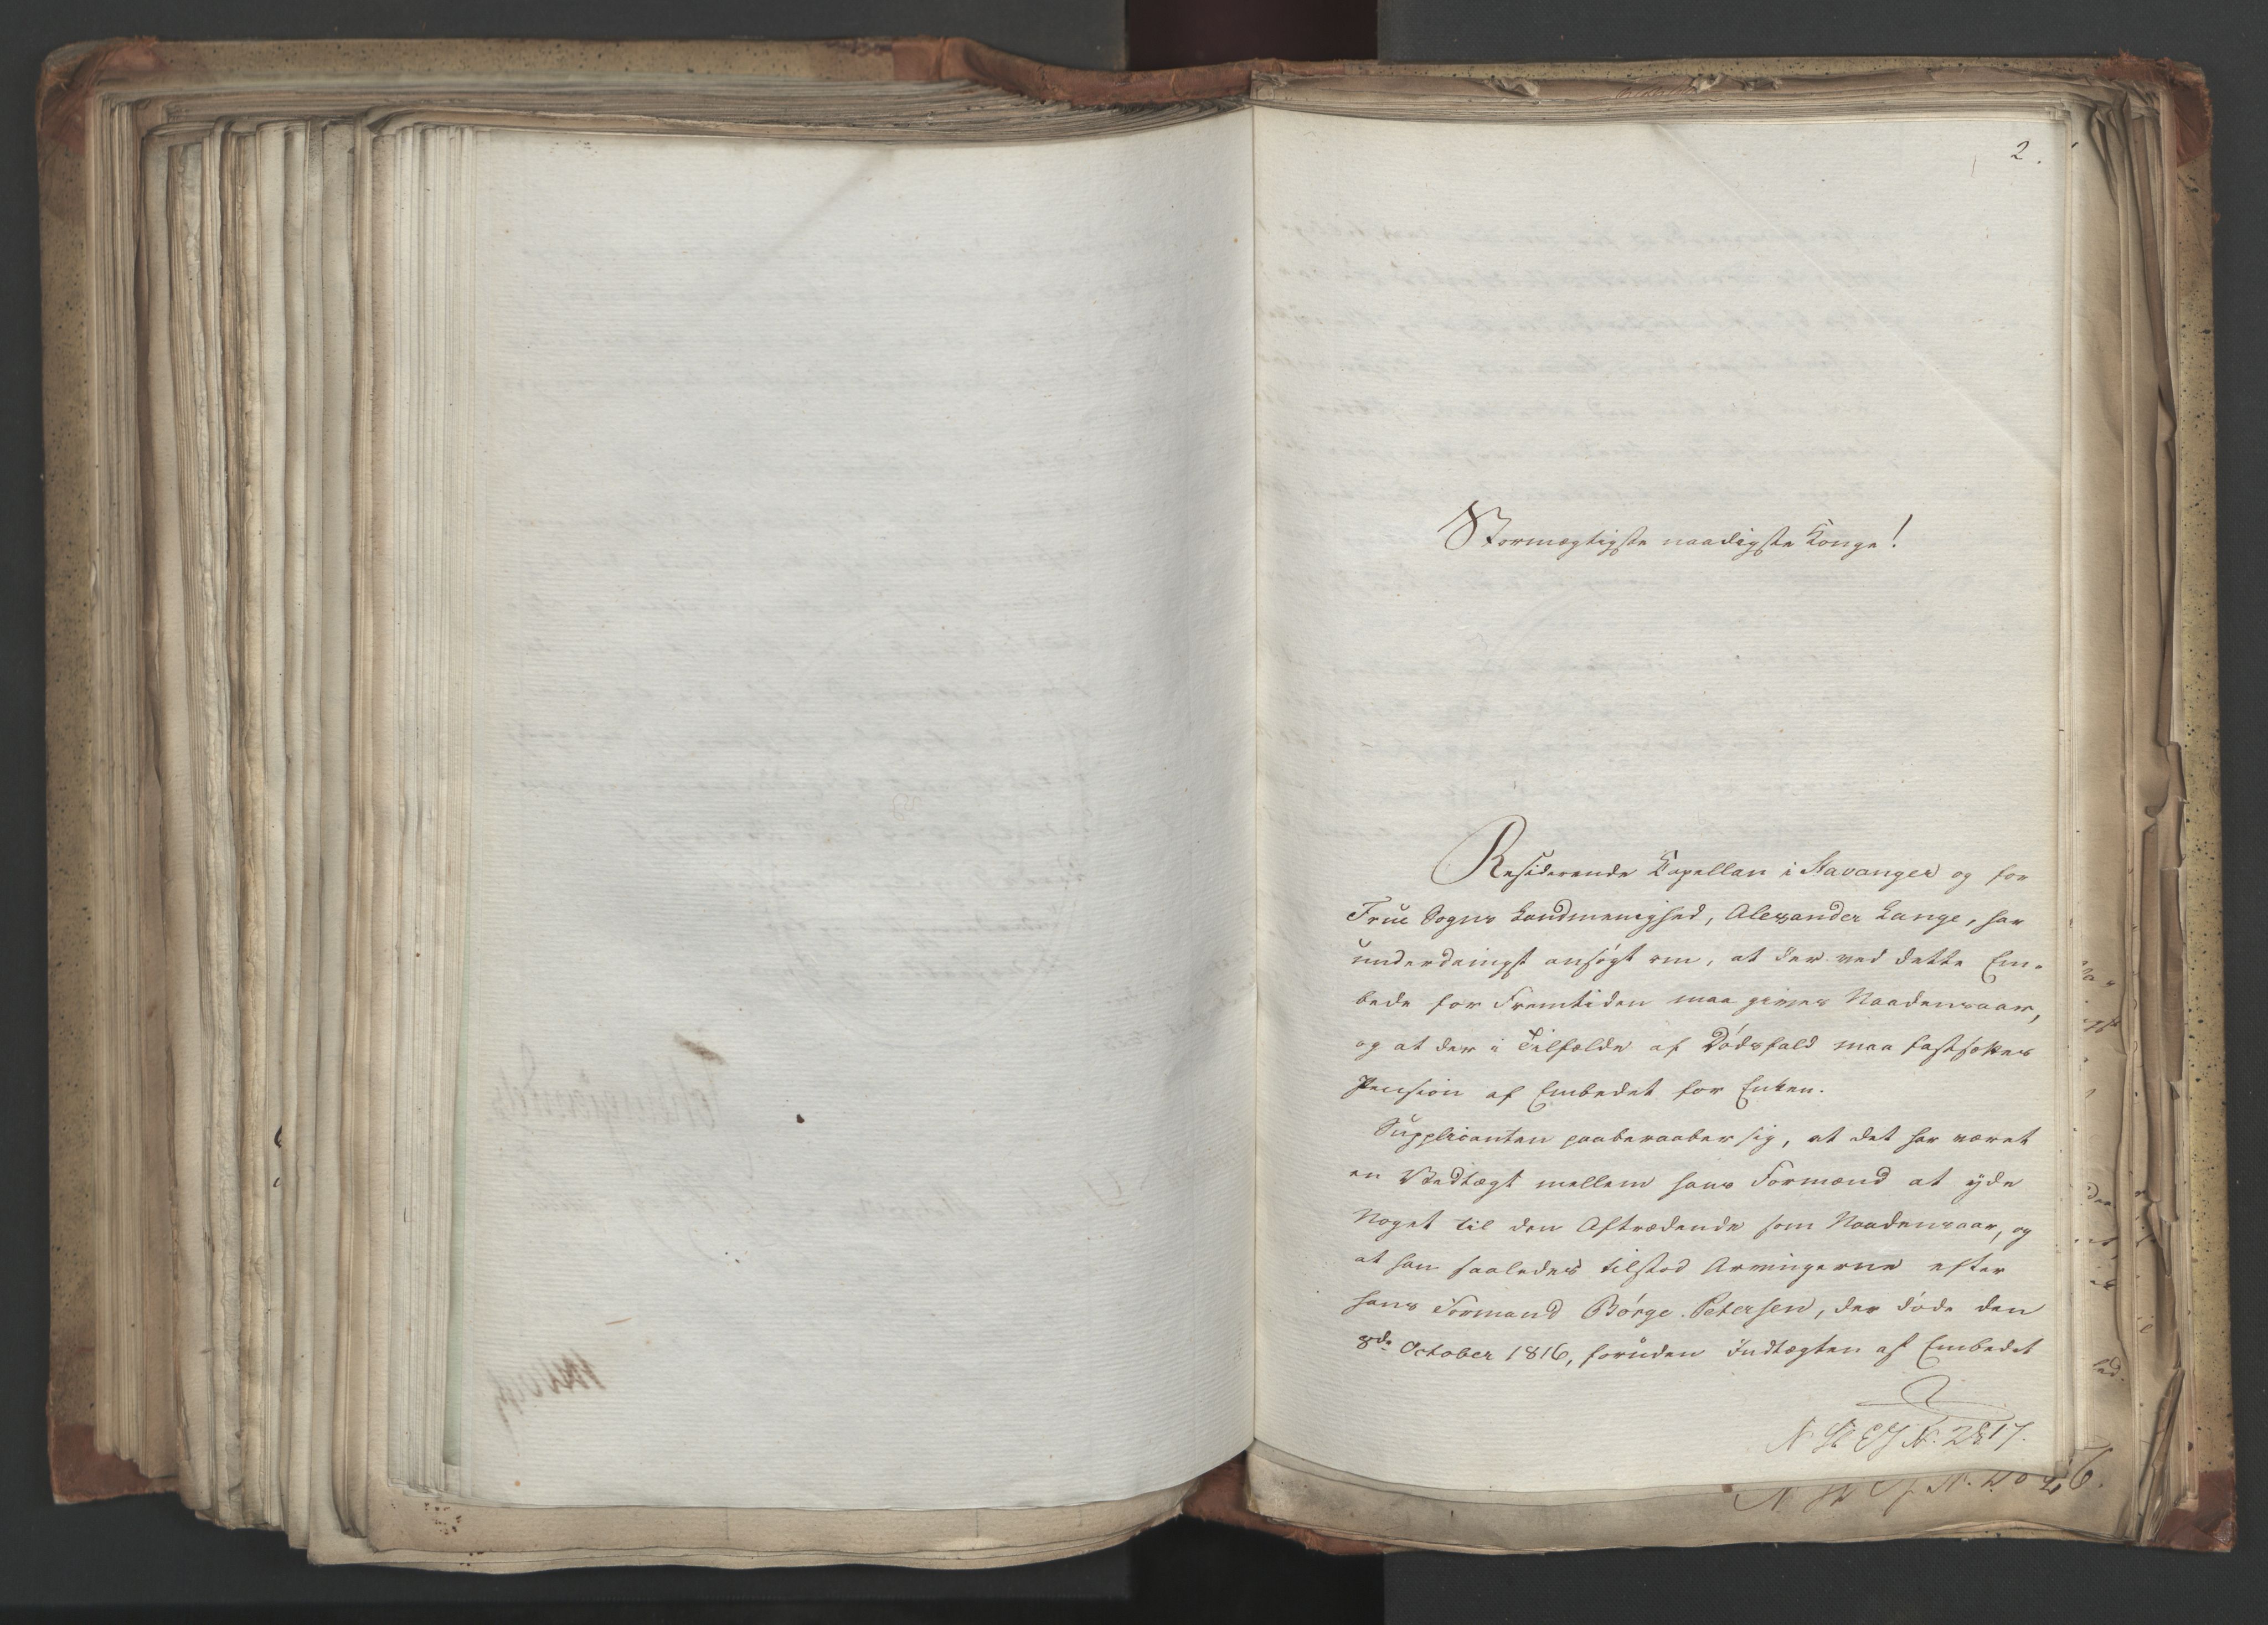 2.
Stormægtigste naadigste Konge!
Residerende Kapellan i Stavanger og for
Frue Sogns Landmenighed, Alexander Lange, har
underdanigst ansøgt om, at der ved dette Em-
bede for Fremtiden maa gives Naadensaar,
og at der i Tilfælde af Dødsfald maa fastsættes
Pension af Embedet for Enken.
Supplicanten paaberaaber sig, at det har været
en Vedtægt mellem hans Formænd at yde
Noget til den Aftrædende som Naadensaar, og
at han saaledes tilstod Arvingerne efter
hans Formand Börge Petersen, der döde den
8de October 1816, foruden Indtægten af Embedet